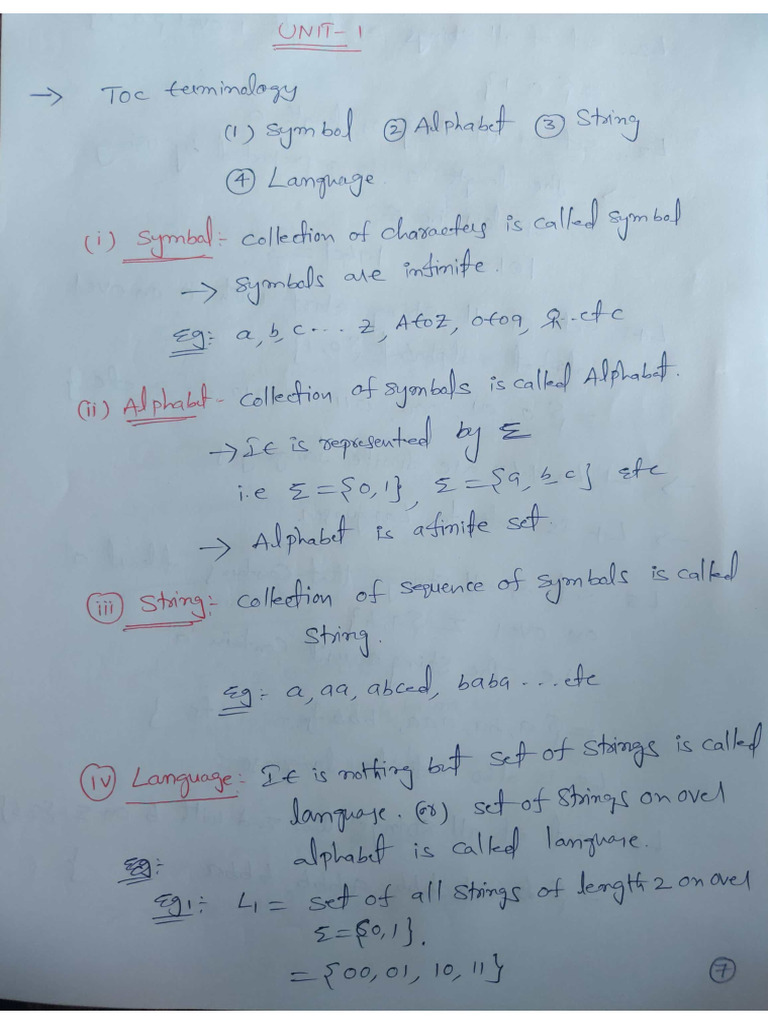 UNIT-1
→ TOC terminology
(1) Symbol ② Alphabet ③ String
④ Language
(i) Symbol:- collection of characters is called symbol
→ Symbols are infinite.
Eg:- a, b, c... z, A to Z, 0 to 9, etc
(ii) Alphabet - collection of symbols is called Alphabet.
→ It is represented by Σ
i.e Σ = {0,1}, Σ = {a, b, c} etc
→ Alphabet is a finite set.
(iii) String:- collection of sequence of symbols is called
string.
Eg:- a, aa, abced, baba ... etc
(iv) Language: It is nothing but set of strings is called
language. (or) set of strings on over
alphabet is called language.
Eg:
Eg1:- L1 = set of all strings of length 2 on over
Σ = {0,1}.
= {00, 01, 10, 11}
⑦